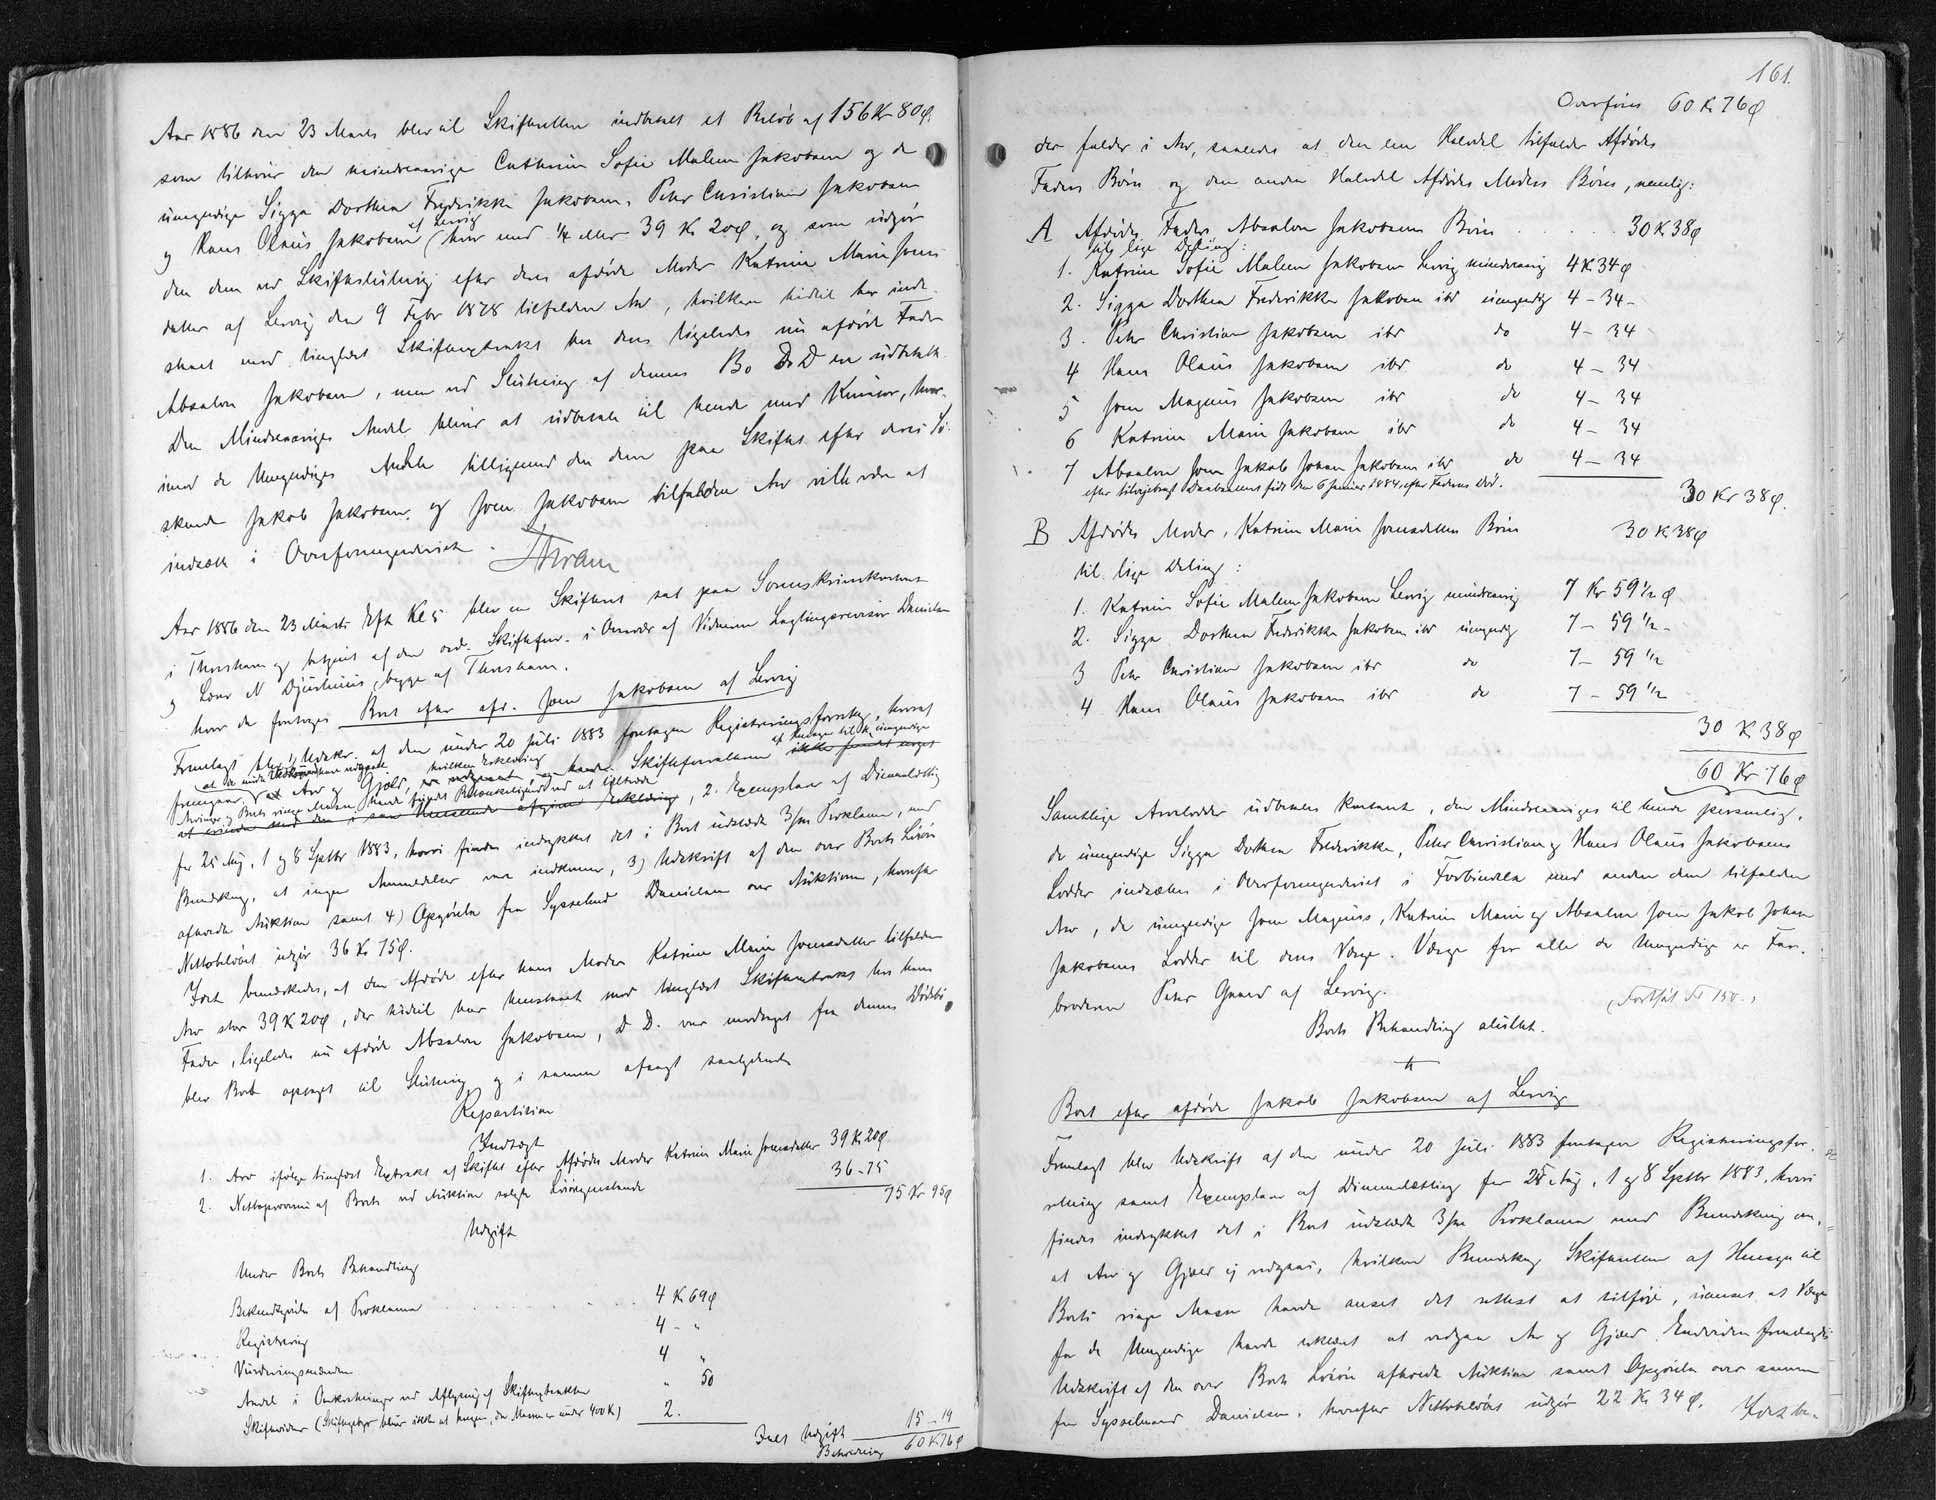 Aar 1886 den 23 Marts blev til Skifteretten indbetalt et Beløb af 156 Kr 80 Ø.
som tilhører den mindreaarige Cathrine Sofie Malene Jakobsen og de
umyndige Sigga Dorthea Fredrikke Jakobsen, Peter Christian Jakobsen
og Hans Olaus Jakobsen af Lervig (hver med ¼ eller 39 Kr 20 Ø, og som udgjør
den dem ved Skifteslutning efter deres afdøde Moder Katrine Marie Joens-
datter af Lervig den 9 Febr 1878 tilfaldne Arv, hvilken hidtil har inde-
staaet mod tinglæst Skifteextrakt hos deres ligeledes nu afdøde Fader
Absalon Jakobsen, men ved Slutning af dennes Bo D. D. er udbetalt.
Den Mindreaariges Andel bliver at udbetale til hende med Kurator, hvor-
imod de Umyndiges Andele tilligemed den dem paa Skiftet efter deres Sø-
skende Jakob Jakobsen og Joen Jakobsen tilfaldne Arv vilde være at
indsætte i Overformynderiet.
Aar 1886 den 23 Marts Eft. Kl 5 blev en Skifteret sat paa Sorenskriverkontoret
i Thorshavn og betjent af den ord. Skifteforv. i Overvær af Vidnerne Lagtingsrevisor Danielsen
og Lars N Djurhuus, begge af Thorshavn,
hvor da foretoges Boet efter afd. Joen Jakobsen af Lervig
Fremlagt blev 1) Udskr. af den under 20 Juli 1883 foretagne Registreringsforretng, hvoraf
fremgaaer at Arv og Gjæld, hvilken Erklæring Skifteforvalteren af Hensyn til de umyndige
Arvinger og Boets ringe Masse havde fundet Betænkelighed ved at tiltræde, 2. Exemplarer af Dimmalætting
for 25 Aug, 1 og 8 Septbr 1883, hvori findes indrykket det i Boet udstedte 3/m Proklama, med
Bemærkng, at ingen Anmeldelser vare indkomne, 3) Udskrift af den over Boets Løsøre
afholdte Auktion samt 4) Opgjørelse fra Sysselmd Danielsen over Auktionen, hvorefter
Nettobeløbet udgjør 36 Kr 75 Ø.
Fort bemærkedes, at den Afdøde efter hans Moder Katrine Marie Joensdatter tilfaldne
Arv stor 39 K 20 Ø, der hidtil har henstaaet mod tinglæst Skifteextract hos hans
Fader, ligeledes nu afdøde Absalon Jakobsen, D. D. var modtaget fra dennes Dødsbo,
blev Boet optaget til Slutning og i samme afsagt saalydende
Repartition
Indtægt
1. Arv ifølge tinglæst Extrakt af Skiftet efter Afdødes Moder Katrine Marie Joensdatter 39 K 20 Ø
2. Nettoprovenu af Boets ved Auktion solgte Løsøregjenstande 36 - 75
75 Kr 95 Ø
Udgift
Under Boets Behandling
Bekendtgjørelse af Proklama 4 K 69 Ø
Registrering 4 - "
Vurderingsmændene 4 "
Andel i Omkostninger ved Aflysning af Skifteextrakten " 50
Skiftevidner (Skiftegebyr bliver ikke at beregne, da Massen er under 400 K) 2.
Ialt Udgift 15 - 19
Beholdning 60 K 76 Ø
161.
Overføres 60 K 76 Ø
der falder i Arv, saaledes at den ene Halvdel tilfalder Afdødes
Faders Børn og den anden Halvdel Afdødes Moders Børn, nemlig:
A Afdødes Fader Absalon Jakobsens Børn 30 K 38 Ø
til lige Deling:
1. Katrine Sofie Malene Jakobsen Lervig mindreaarig 4 K 34 Ø
2. Sigga Dorthea Frederikke Jakobsen ibd umyndig 4 - 34 -
3. Peter Christian Jakobsen ibd do 4 - 34
4 Hans Olaus Jakobsen ibd do 4 - 34
5 Joen Magnus Jakobsen ibd do 4 - 34
6 Katrine Marie Jakobsen ibd do 4 - 34
7 Absalon Joen Jakob Johan Jakobsen ibd do 4 - 34
efter tilvejebragt Daabsattest født den 6 Januar 1884, efter Faderens Død.
30 Kr 38 Ø.
B Afdødes Moder, Katrine Marie Joensdatters Børn 30 K 38 Ø
til lige Deling:
1. Katrine Sofie Malene Jakobsen Lervig mindreaarig 7 Kr 59 ½ Ø
2. Sigga Dorthea Frederikke Jakobsen ibd umyndig 7 - 59 ½ -
3 Peter Christian Jakobsen ibd do 7 - 59 ½
4 Hans Olaus Jakobsen ibd do 7 - 59 ½
30 K 38 Ø
60 Kr 76 Ø
Samtlige Arvelodder udbetales kontant, den Mindreaariges til hende personlig,
de umyndige Sigga Dorthea Frederikke, Peter Christian og Hans Olaus Jakobsens
Lodder indsættes i Overformynderiet i Forbindelse med anden dem tilfalden
Arv, de umyndige Joen Magnus, Katrine Marie og Absalon Joen Jakob Johan
Jakobsens Lodder til deres Værge. Værge for alle de Umyndige er Far-
broderen Peter Gaard af Lervig.
(Fortsat Fol 150.)
Boets Behandling sluttet.
Boet efter afdøde Jakob Jakobsen af Lervig
Fremlagt blev Udskrift af den under 20 Juli 1883 foretagne Registreringsfor-
retning samt Exemplarer af Dimmalætting for 25 Aug, 1 og 8 Septbr 1883, hvori
findes indrykket det i Boet udstedte 3/m Proklama med Bemærkning om,
at Arv og Gjæld ej vedgaaes, hvilken Bemærkng Skifteretten af Hensyn til
Boets ringe Masse havde anset det rettest at tilføje, uanset at Værgen
for de Umyndige havde erklæret at vedgaa Arv og Gjæld. Endvidere fremlagdes
Udskrift af den over Boets Løsøre afholdte Auktion samt Opgjørelse over samme
fra Sysselmand Danielsen, hvorefter Nettobeløbet udgjør 22 Kr 34 Ø. Fort be-